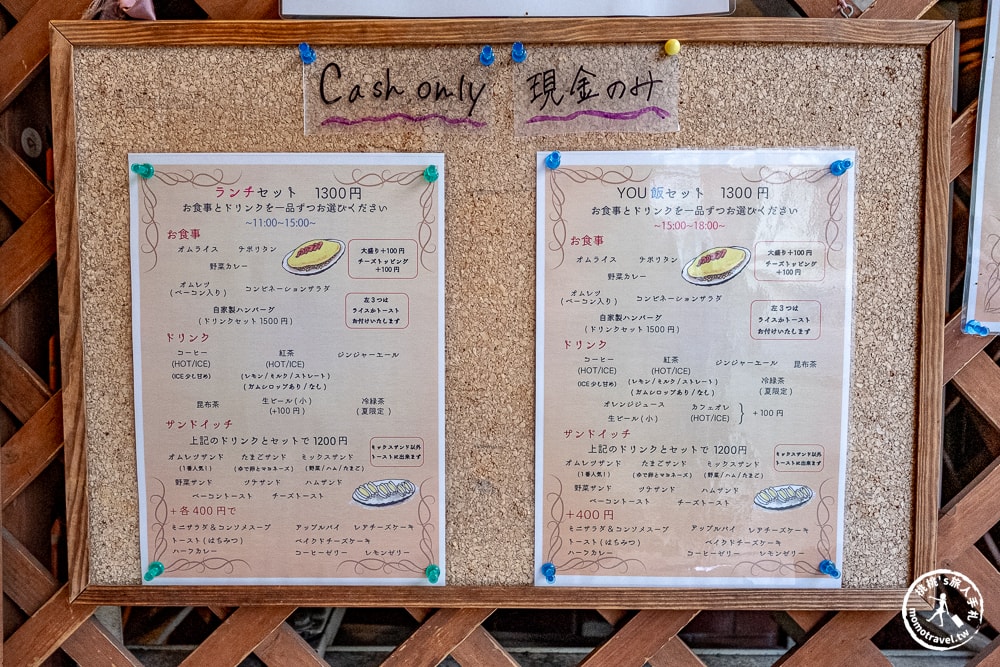 Cash only
現金のみ
ランチセット 1300円
お食事とドリンクを一品ずつお選びください
~11:00~15:00~
お食事
オムライス ナポリタン
野菜カレー
大盛り+100円
チーズトッピング
+100円
オムレツ
(ベーコン入り) コンビネーションサラダ
自家製ハンバーグ
(ドリンクセット 1500円)
左3つは
ライスかトースト
お付けいたします
ドリンク
コーヒー
(HOT/ICE)
(ICE 少し甘め)
紅茶
(HOT/ICE)
(レモン/ミルク/ストレート)
(ガムシロップあり/なし)
ジンジャーエール
昆布茶
生ビール(小)
(+100円)
冷緑茶
(夏限定)
サンドイッチ
上記のドリンクとセットで1200円
オムレツサンド たまごサンド ミックスサンド
(1番人気!) (ゆで卵とマヨネーズ) (野菜/ハム/たまご)
ミックスサンド以外
トーストに出来ます
野菜サンド ツナサンド ハムサンド
ベーコントースト チーズトースト
+各400円で
ミニサラダ&コンソメスープ アップルパイ レアチーズケーキ
トースト(はちみつ) ベイクドチーズケーキ
ハーフカレー コーヒーゼリー レモンゼリー
YOU飯セット 1300円
お食事とドリンクを一品ずつお選びください
~15:00~18:00~
お食事
オムライス ナポリタン
野菜カレー
大盛り+100円
チーズトッピング
+100円
オムレツ
(ベーコン入り) コンビネーションサラダ
自家製ハンバーグ
(ドリンクセット 1500円)
左3つは
ライスかトースト
お付けいたします
ドリンク
コーヒー
(HOT/ICE)
(ICE 少し甘め)
紅茶
(HOT/ICE)
(レモン/ミルク/ストレート)
(ガムシロップあり/なし)
ジンジャーエール 昆布茶
冷緑茶
(夏限定)
オレンジジュース カフェオレ
生ビール(小) (HOT/ICE) } +100円
サンドイッチ
上記のドリンクとセットで1200円
オムレツサンド たまごサンド ミックスサンド
(1番人気!) (ゆで卵とマヨネーズ) (野菜/ハム/たまご)
ミックスサンド以外
トーストに出来ます
野菜サンド ツナサンド ハムサンド
ベーコントースト チーズトースト
+400円
ミニサラダ&コンソメスープ アップルパイ レアチーズケーキ
トースト(はちみつ) ベイクドチーズケーキ
ハーフカレー コーヒーゼリー レモンゼリー
桃桃's旅人手札
momotravel.tw